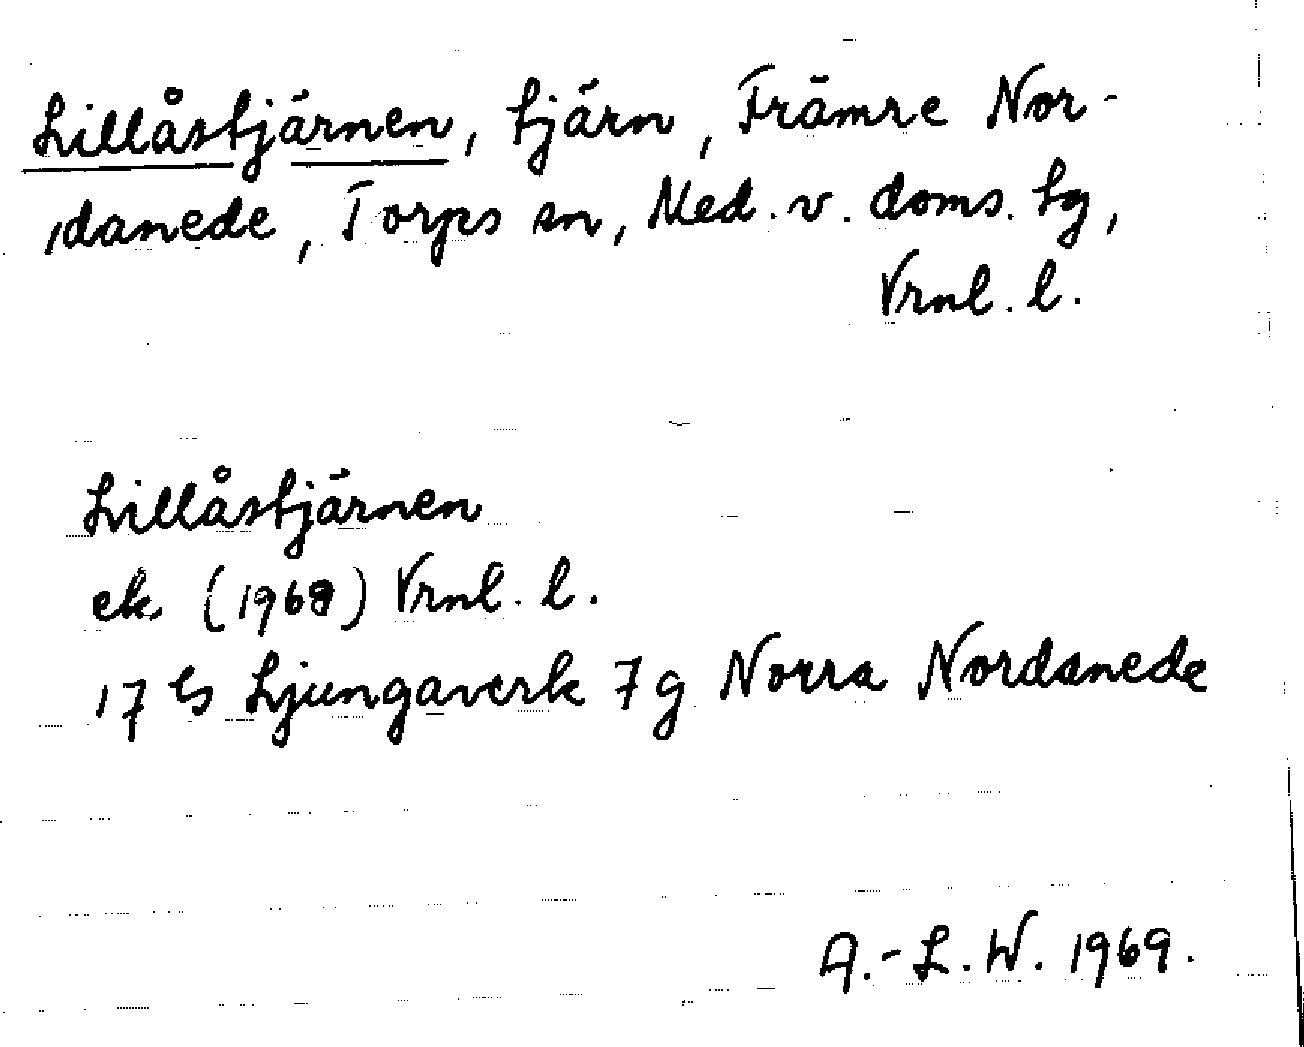 Lillåstjärnen, tjärn, Främre Nor-
danede, Torps sn, Med. v. doms. tg,
Vrnl. l.
Lillåstjärnen
ek. (1968) Vrnl. l.
17 G Ljungaverk 7g Norra Nordanede
A.-L.W. 1969.